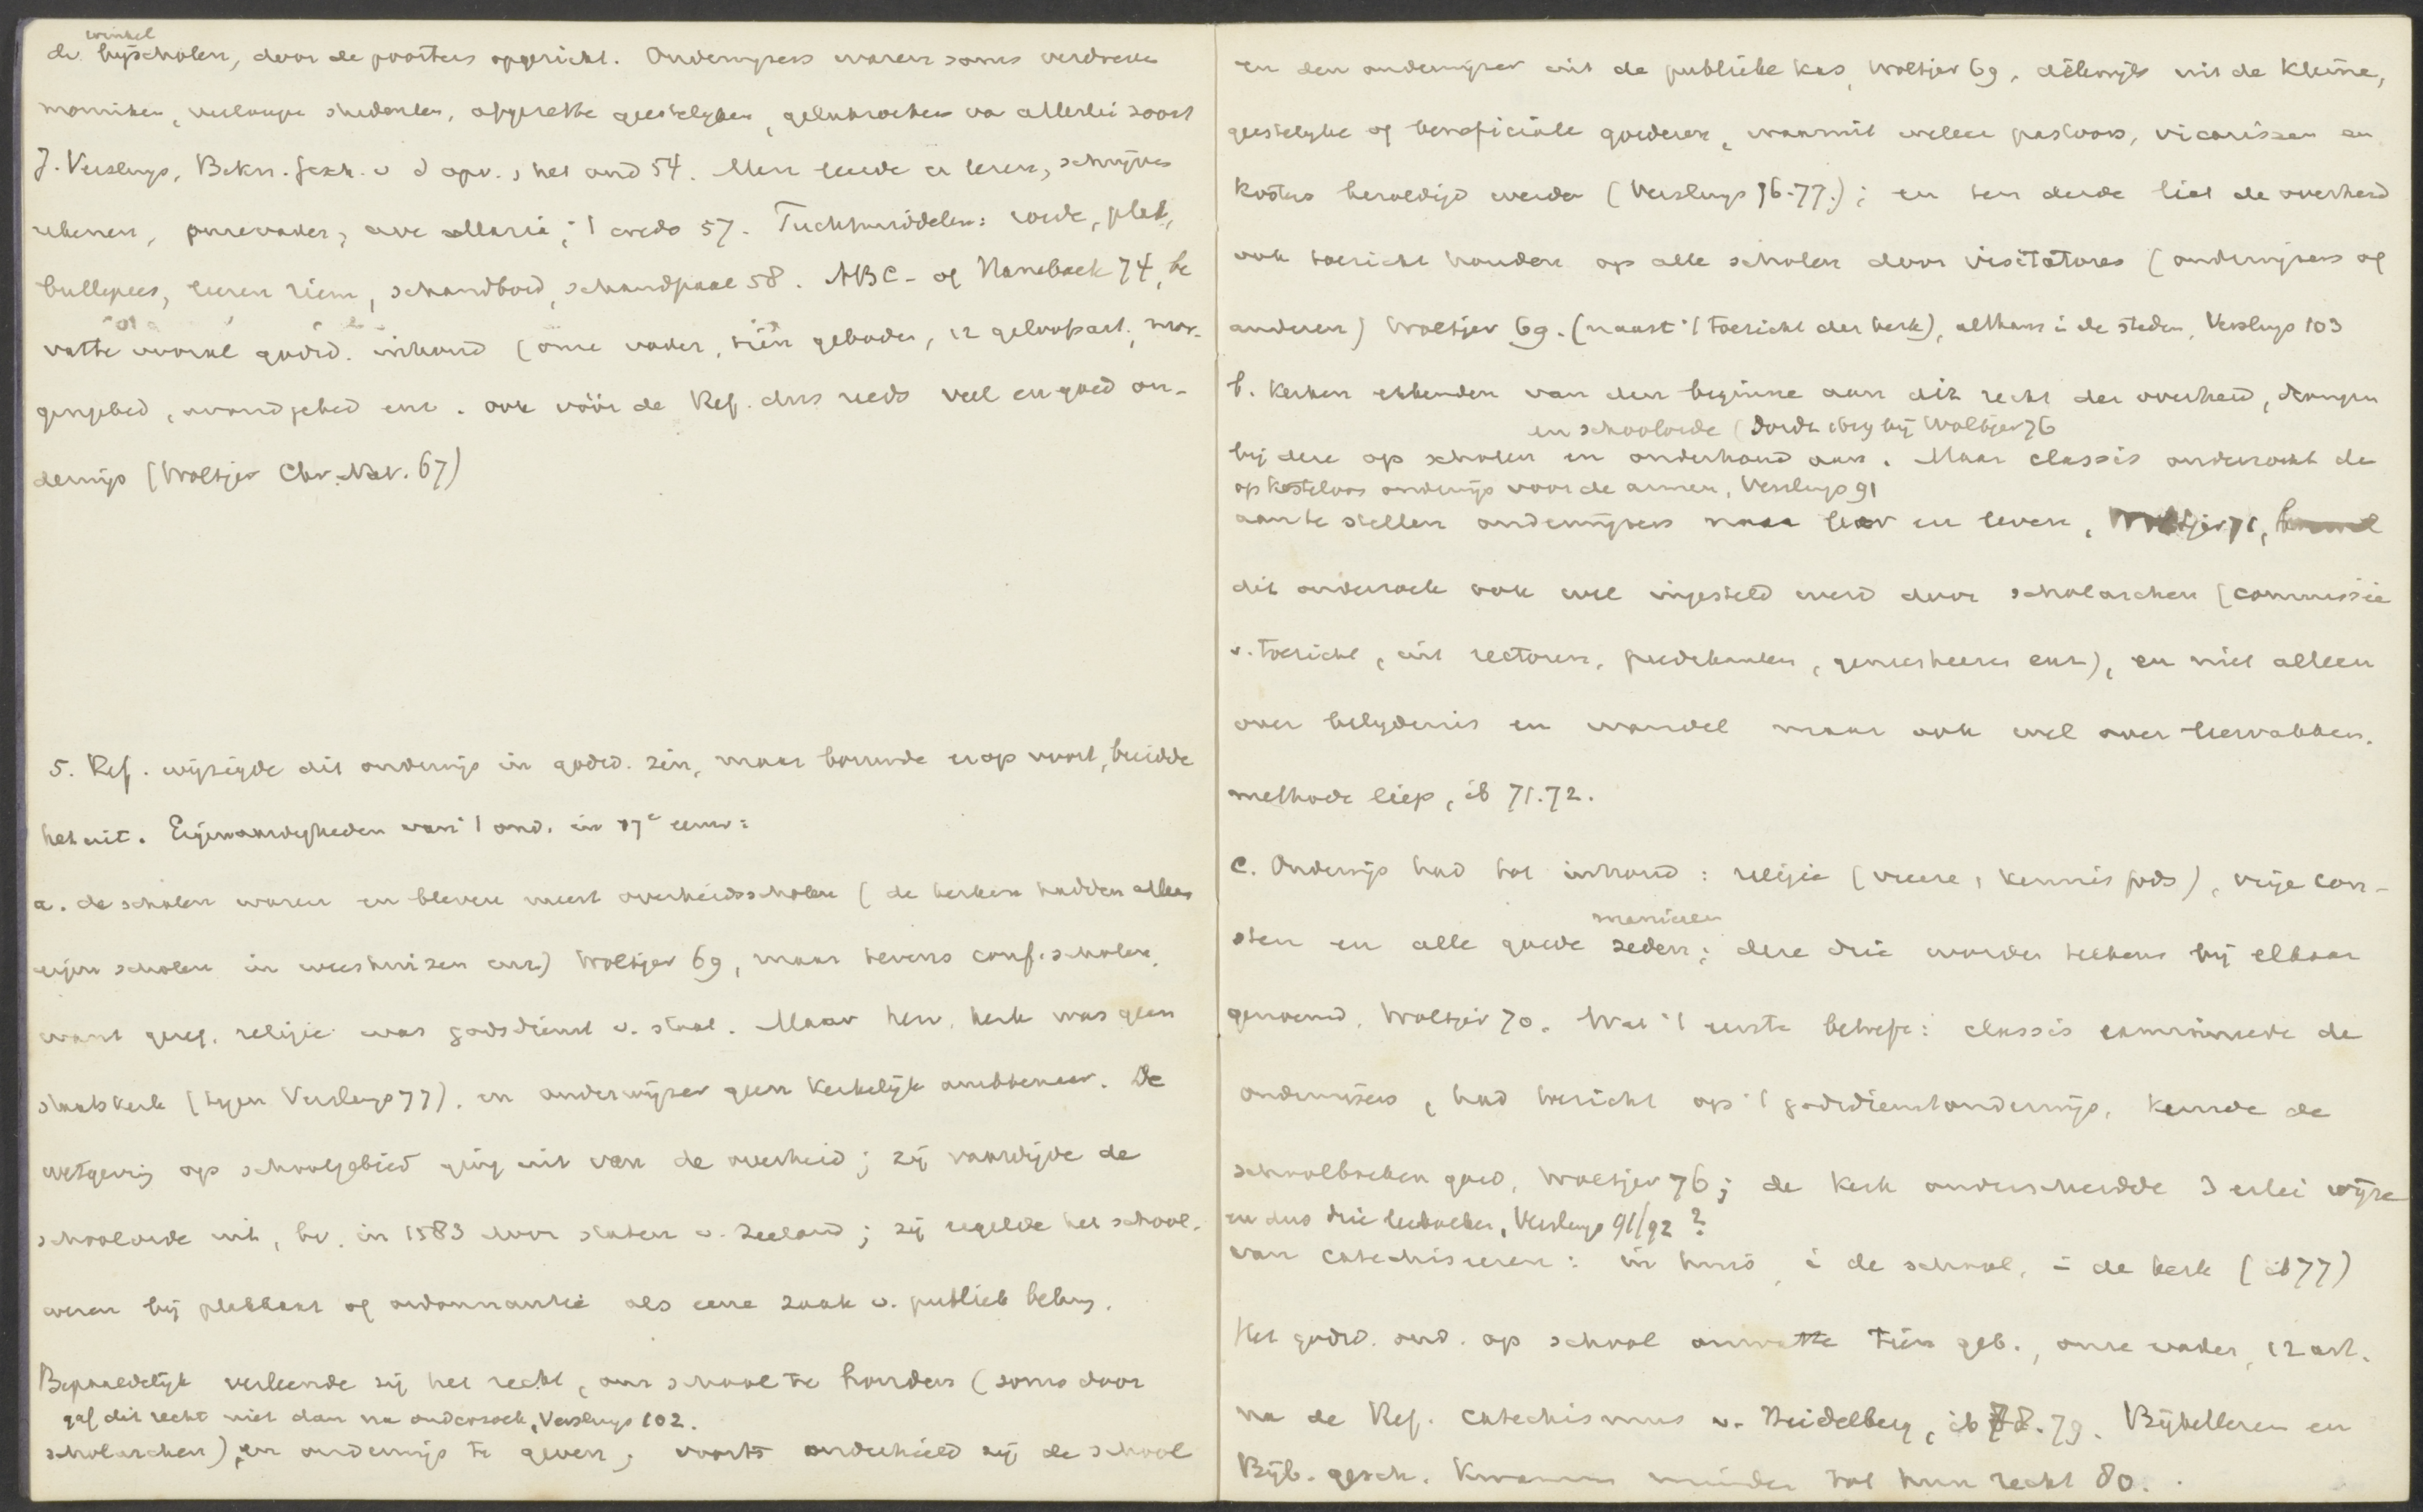 winkel
de bijscholen, door de poorters opgericht. Onderwijzers waren soms verdreven
monniken, verloopen studenten, afgezette geestelijken, gelukzoekers van allerlei soort
J. Versluys, Bekn. Gesch. v d opv. & het ond 54. Men leerde er lezen, schrijven
rekenen, onzevader, ave Maria, 't credo 57. Tuchtmiddelen: roede, plak,
bullepees, leeren riem, schandbord, schandpaal 58. ABC- of Haneboek 74, be
vatte vooral godsd. inhoud (onze vader, tien geboden, 12 geloofsart., mor-
gengebed, avondgebed enz. Ook vóór de Ref. dus reeds veel en goed on-
derwijs (Woltjer Chr. Nat. 67)
5. Ref. wijzigde dit onderwijs in godsd. zin, maar bouwde erop voort, breidde
het uit. Eigenaardigheden van 't ond. in 17e eeuw:
a. de scholen waren en bleven meest overheidsscholen (de kerken hadden alleen
eigen scholen in weeshuizen enz.) Woltjer 69, maar tevens conf. scholen,
want geref. religie was godsdienst v. staat. Maar herv. kerk was geen
staatskerk (tegen Versluys 77), en onderwijzer geen kerkelijk ambtenaar. De
wetgeving op schoolgebied ging uit van de overheid; zij vaardigde de
schoolorde uit, bv. in 1583 door staten v. Zeeland; zij regelde het school-
wezen bij plakkaat of ordonnantie als eene zaak v. publiek belang.
Bepaaldelijk verleende zij het recht, om school te houden (soms door
gaf dit recht niet dan na onderzoek, Versluys 102.
scholarchen), en onderwijs te geven; voorts onderhield zij de school
en den onderwijzer uit de publieke kas, Woltjer 69, dikwijls uit de kleine,
geestelijke of beneficiale goederen, waaruit weleer pastoors, vicarissen en
kosters bezoldigd werden (Versluys 76-77.); en ten derde liet de overheid
ook toezicht houden op alle scholen door visitatores (onderwijzers of
anderen) Woltjer 69. (naast 't toezicht der kerk), althans in de steden, Versluys 103
b. Kerken erkenden van den beginne aan dit recht der overheid, drongen
en schoolorde (Dordt 1618/19 bij Woltjer 76
bij deze op scholen en onderhoud aan. Maar classis onderzocht de
op kosteloos onderwijs voor de armen, Versluys 91
aan te stellen onderwijzers naar leer en leven, Woltjer 71,
dit onderzoek ook wel ingesteld werd door scholarchen (commissie
v. toezicht, uit rectoren, predikanten, geneesheeren enz), en niet alleen
over belijdenis en wandel maar ook wel over leervakken.
methode liep, ib 71.72.
c. Onderwijs had tot inhoud: religie (vreeze, kennis Gods), vrije con-
manieren
sten en alle goede zeden; deze drie worden telkens bij elkaar
genoemd, Woltjer 70. Wat 't eerste betreft: classis examineerde de
onderwijzers, had toezicht op 't godsdienstonderwijs, keurde de
schoolboeken goed, Woltjer 76; de kerk onderscheidde 3 erlei wijze
en dus drie leerboeken, Versluys 91/92?
van catechiseren: in huis, i de school, i de kerk (ib 77)
Het godsd. ond. op school omvatte tien geb., onze vader, 12 art.
na de Ref. catechismus v. Heidelberg, ib 78.79. Bijbellezen en
Bijb. gesch. kwamen minder tot hun recht 80.